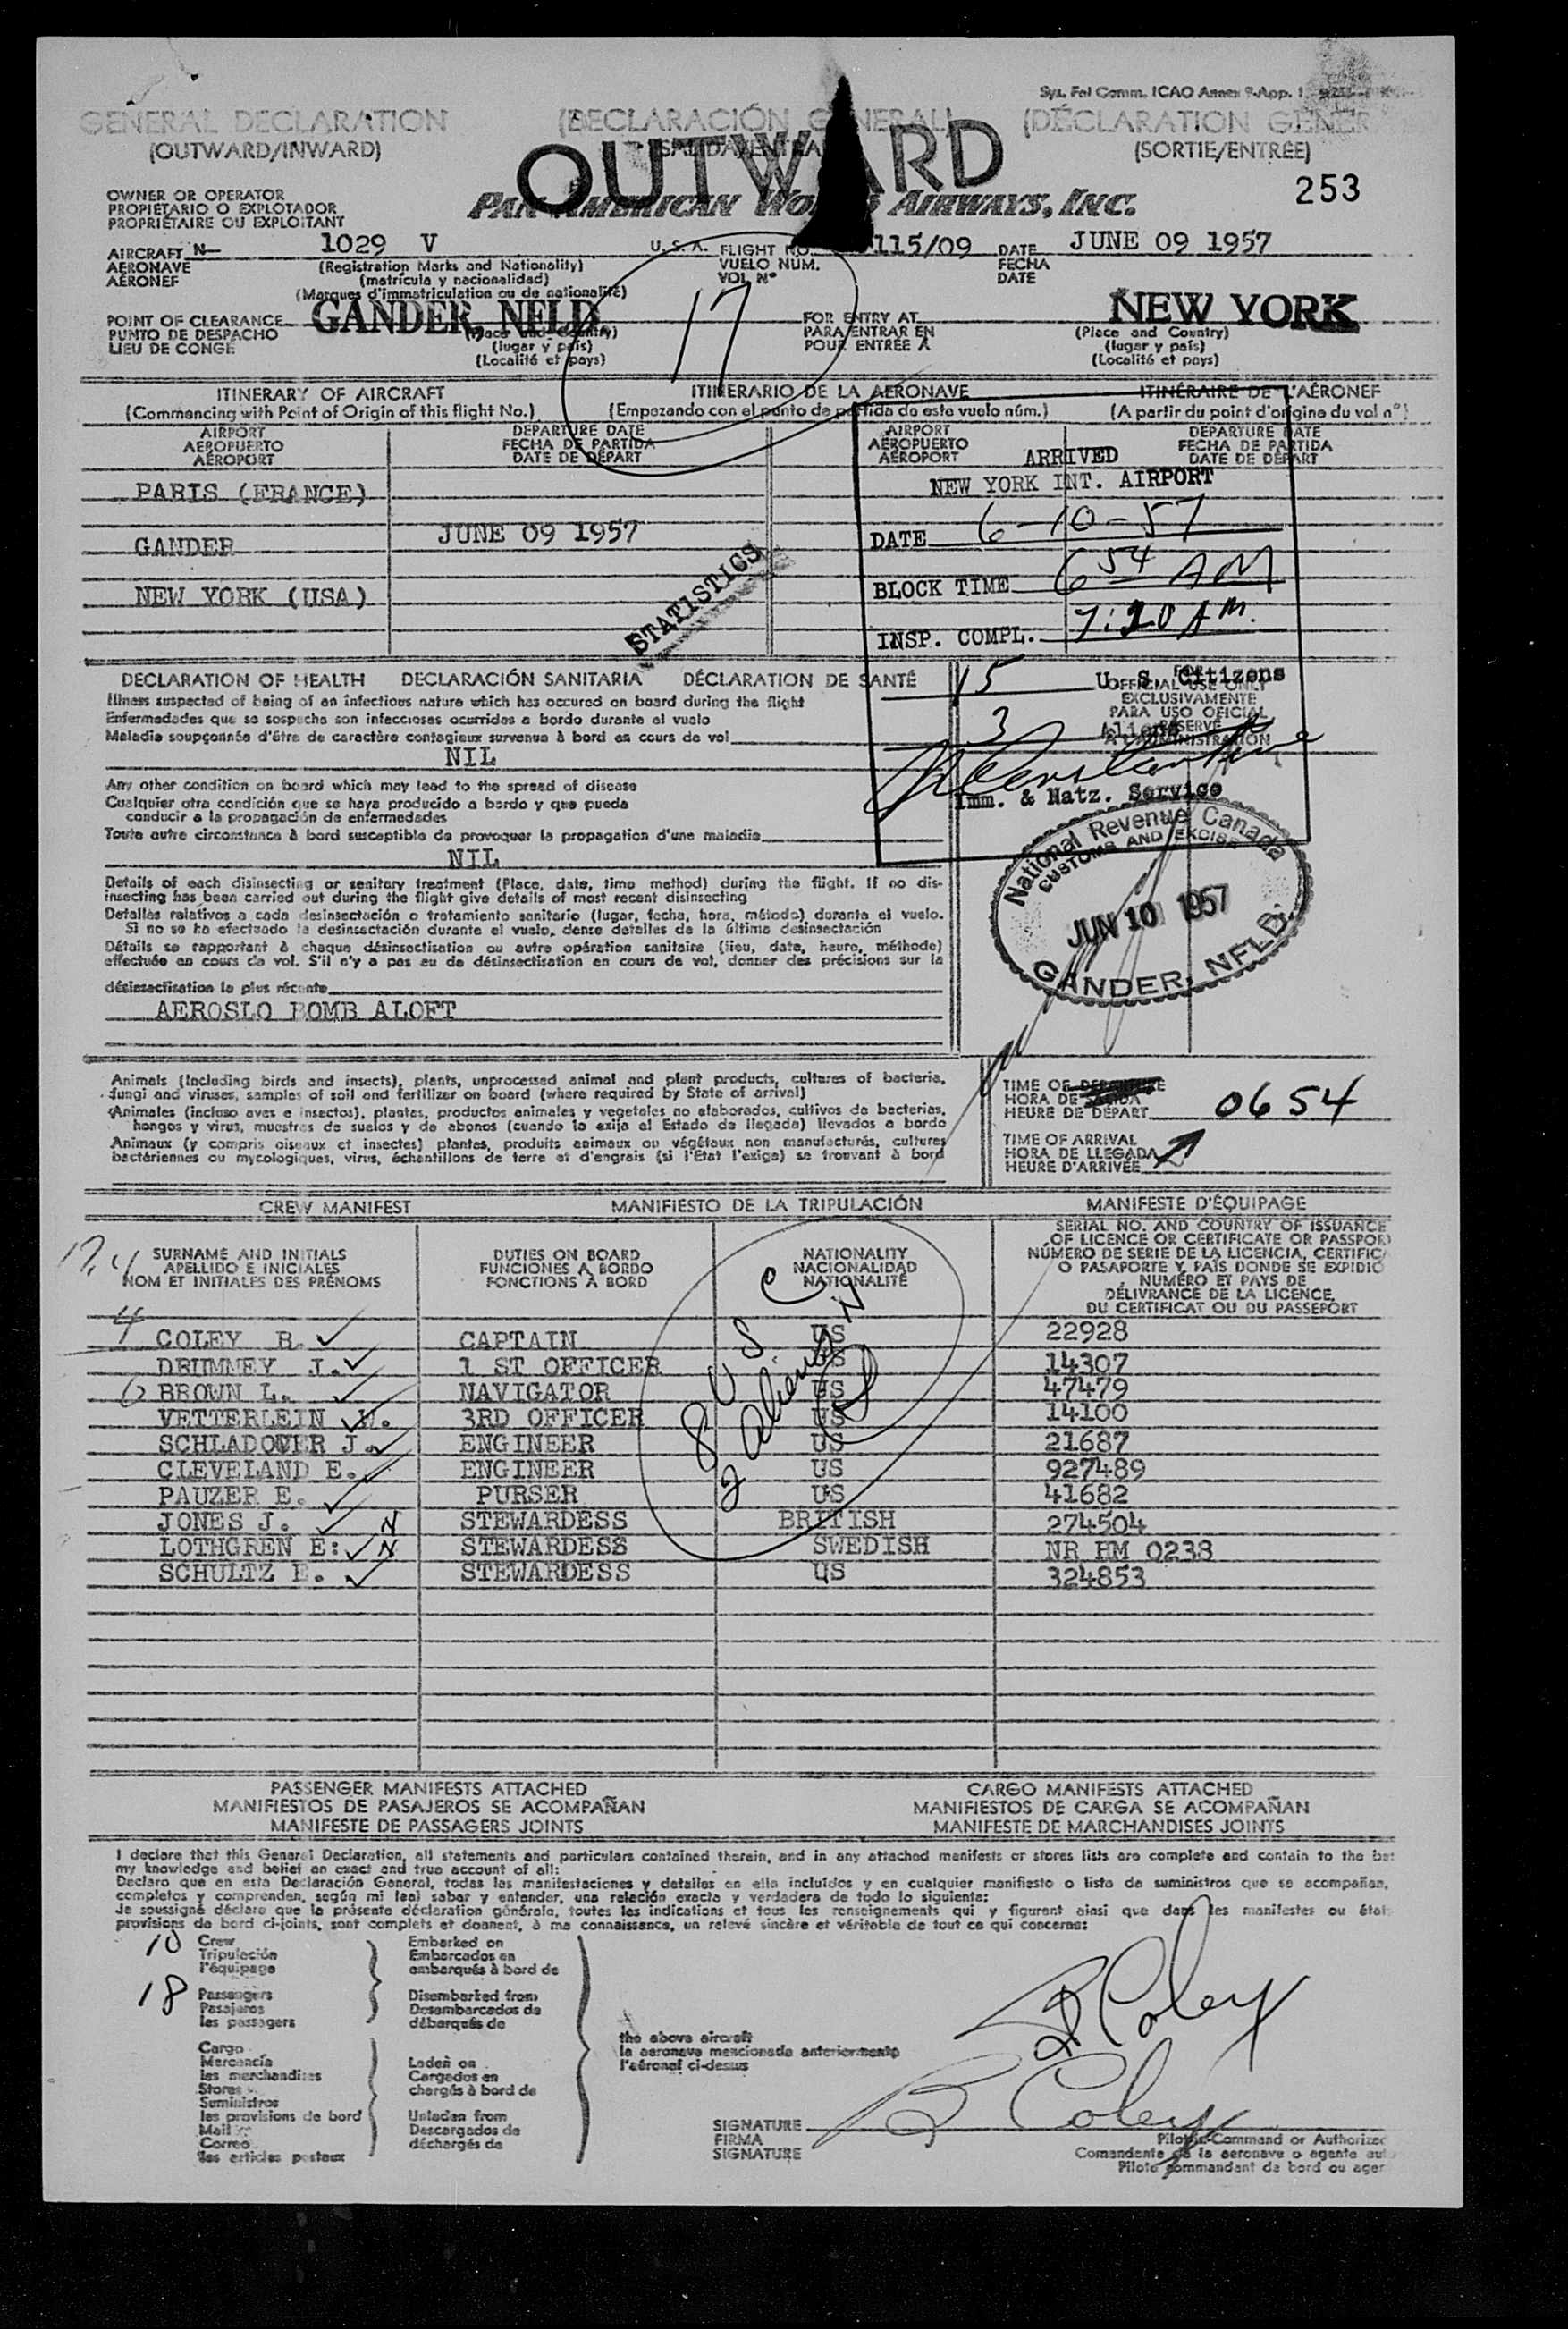 Sys. Fal Comm. ICAO Annex 9-App. 1
GENERAL DECLARATION (DECLARACIÓN GENERAL) (DÉCLARATION GENER
(OUTWARD/INWARD) (SORTIE/ENTRÉE)
OUTWARD
253
OWNER OR OPERATOR
PROPIETARIO O EXPLOTADOR
PROPRIÉTAIRE OU EXPLOITANT
PAN AMERICAN WORLD AIRWAYS, INC.
AIRCRAFT N— 1029 V U.S.A. FLIGHT NO. 115/09 DATE JUNE 09 1957
AERONAVE (Registration Marks and Nationality) VUELO NÚM. FECHA
AÉRONEF (matrícula y nacionalidad) VOL N° DATE
(Marques d'immatriculation ou de nationalité)
17
POINT OF CLEARANCE GANDER NFLD FOR ENTRY AT NEW YORK
PUNTO DE DESPACHO (Place and Country) PARA ENTRAR EN (Place and Country)
LIEU DE CONGÉ (lugar y país) POUR ENTRÉE À (lugar y país)
(Localité et pays) (Localité et pays)
ITINERARY OF AIRCRAFT ITINERARIO DE LA AERONAVE ITINÉRAIRE DE L'AÉRONEF
(Commencing with Point of Origin of this flight No.) (Empezando con el punto de partida de este vuelo núm.) (A partir du point d'origine du vol n°)
AIRPORT DEPARTURE DATE AIRPORT DEPARTURE DATE
AEROPUERTO FECHA DE PARTIDA AEROPUERTO FECHA DE PARTIDA
AÉROPORT DATE DE DÉPART AÉROPORT DATE DE DÉPART
PARIS (FRANCE)
GANDER JUNE 09 1957
NEW YORK (USA)
STATISTICS
ARRIVED
NEW YORK INT. AIRPORT
DATE 6-10-57
BLOCK TIME 6 54 AM
INSP. COMPL. 7:20 AM.
15 U. S. Citizens
3 Aliens
Imm. & Natz. Service
OFFICIAL USE ONLY
EXCLUSIVAMENTE
PARA USO OFICIAL
DECLARATION OF HEALTH DECLARACIÓN SANITARIA DÉCLARATION DE SANTÉ
Illness suspected of being of an infectious nature which has occured on board during the flight
Enfermedades que se sospecha son infecciosas ocurridas a bordo durante el vuelo
Maladie soupçonnée d'être de caractère contagieux survenue à bord en cours de vol
NIL
Any other condition on board which may lead to the spread of disease
Cualquier otra condición que se haya producido a bordo y que pueda
conducir a la propagación de enfermedades
Toute autre circonstance à bord susceptible de provoquer la propagation d'une maladie
NIL
Details of each disinsecting or sanitary treatment (Place, date, time method) during the flight. If no dis-
insecting has been carried out during the flight give details of most recent disinsecting
Detalles relativos a cada desinsectación o tratamiento sanitario (lugar, fecha, hora, método) durante el vuelo.
Si no se ha efectuado la desinsectación durante el vuelo, dense detalles de la última desinsectación
Détails se rapportant à chaque désinsectisation ou autre opération sanitaire (lieu, date, heure, méthode)
effectuée en cours de vol. S'il n'y a pas eu de désinsectisation en cours de vol, donner des précisions sur la
désinsectisation la plus récente
AEROSLO BOMB ALOFT
National Revenue Canada
CUSTOMS AND EXCISE
JUN 10 1957
GANDER, NFLD.
Animals (Including birds and insects), plants, unprocessed animal and plant products, cultures of bacteria,
fungi and viruses, samples of soil and fertilizer on board (where required by State of arrival)
Animales (incluso aves e insectos), plantas, productos animales y vegetales no elaborados, cultivos de bacterias,
hongos y virus, muestras de suelos y de abonos (cuando lo exija el Estado de llegada) llevados a bordo
Animaux (y compris oiseaux et insectes) plantes, produits animaux ou végétaux non manufacturés, cultures
bactériennes ou mycologiques, virus, échantillons de terre et d'engrais (si l'État l'exige) se trouvant à bord
TIME OF DEPARTURE
HORA DE SALIDA
HEURE DE DÉPART 0654
TIME OF ARRIVAL
HORA DE LLEGADA
HEURE D'ARRIVÉE
CREW MANIFEST MANIFIESTO DE LA TRIPULACIÓN MANIFESTE D'ÉQUIPAGE
SURNAME AND INITIALS DUTIES ON BOARD NATIONALITY SERIAL NO. AND COUNTRY OF ISSUANCE
APELLIDO E INICIALES FUNCIONES A BORDO NACIONALIDAD OF LICENCE OR CERTIFICATE OR PASSPOR
NOM ET INITIALES DES PRÉNOMS FONCTIONS À BORD NATIONALITÉ NÚMERO DE SERIE DE LA LICENCIA, CERTIFIC
O PASAPORTE Y PAÍS DONDE SE EXPIDIÓ
NUMÉRO ET PAYS DE
DÉLIVRANCE DE LA LICENCE,
DU CERTIFICAT OU DU PASSEPORT
8 U S C
2 aliens N
COLEY B. CAPTAIN US 22928
DRUMMEY J. 1 ST OFFICER US 14307
BROWN L. NAVIGATOR US 47479
VETTERLEIN 3RD OFFICER US 14100
SCHLADOVER J. ENGINEER US 21687
CLEVELAND E. ENGINEER US 927489
PAUZER E. PURSER US 41682
JONES J. N STEWARDESS BRITISH 274504
LOTHGREN E: N STEWARDESS SWEDISH NR HM 0238
SCHULTZ E. STEWARDESS US 324853
PASSENGER MANIFESTS ATTACHED CARGO MANIFESTS ATTACHED
MANIFIESTOS DE PASAJEROS SE ACOMPAÑAN MANIFIESTOS DE CARGA SE ACOMPAÑAN
MANIFESTE DE PASSAGERS JOINTS MANIFESTE DE MARCHANDISES JOINTS
I declare that this General Declaration, all statements and particulars contained therein, and in any attached manifests or stores lists are complete and contain to the bes
my knowledge and belief an exact and true account of all:
Declaro que en esta Declaración General, todas las manifestaciones y detalles en ella incluídos y en cualquier manifiesto o lista de suministros que se acompañan,
completos y comprenden, según mi leal saber y entender, una relación exacta y verdadera de todo lo siguiente:
Je soussigné déclare que la présente déclaration générale, toutes les indications et tous les renseignements qui y figurent ainsi que dans les manifestes ou état
provisions de bord ci-joints, sont complets et donnent, à ma connaissance, un relevé sincère et véritable de tout ce qui concerne:
10 Crew Embarked on
Tripulación Embarcados en
l'équipage embarqués à bord de
18 Passengers Disembarked from
Pasajeros Desembarcados de
les passagers débarqués de
the above aircraft
la aeronave mencionada anteriormente
l'aéronef ci-dessus
Cargo
Mercancía Laden on
les marchandises Cargados en
Stores chargés à bord de
Suministros
les provisions de bord Unladen from
Mail Descargados de
Correo déchargés de
les articles postaux
B Coley
SIGNATURE B Coley
FIRMA Pilot-in-Command or Authorized
SIGNATURE Comandante de la aeronave o agente auto
Pilote commandant de bord ou agen